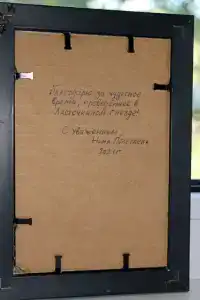 Благодарю за чудесное
время, проведённое в
"Ласточкином гнезде"
С уважением,
Нина